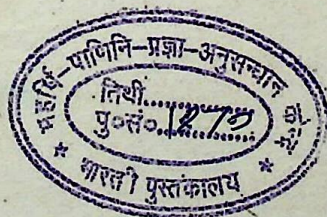 महर्षि-पाणिनि-प्रज्ञा-अनुसन्धान केन्द्र
तिथी..................
पु०सं०
* भारती पुस्तकालय *